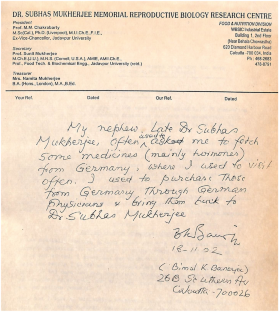 DR. SUBHAS MUKHERJEE MEMORIAL REPRODUCTIVE BIOLOGY RESEARCH CENTRE
President
Prof. M.M. Chakrabarty
M.Sc(Cal.), Ph.D. (Liverpool), M.I.I.Ch.E., F.I.E.,
Ex-Vice-Chancellor, Jadavpur University
Secretary
Prof. Sunit Mukherjee
Prof., Food Tech. & Biochemical Engg., Jadavpur University (retd.)
Treasurer
Mrs. Namita Mukherjee
B.A. (Hons., London), M.A.,B.Ed.
FOOD & NUTRITION DIVISION
WBSIC Industrial Estate
Building 1, 2nd Floor
(Near Behala Chowrasta)
620 Diamond Harbour Road
Calcutta - 700 034, India
Your Ref.
Dated
Our Ref.
Dated
My nephew, Late Dr Subhas
Mukherjee, often asked me to fetch
some medicines (mainly hormones)
from Germany, where I used to visit
often. I used to purchase those
from Germany through German
Physicians & bring them back to
Dr Subhas Mukherjee
18-11-02
(Bimal K Banerjee)
26B Southern Av
Calcutta-700026